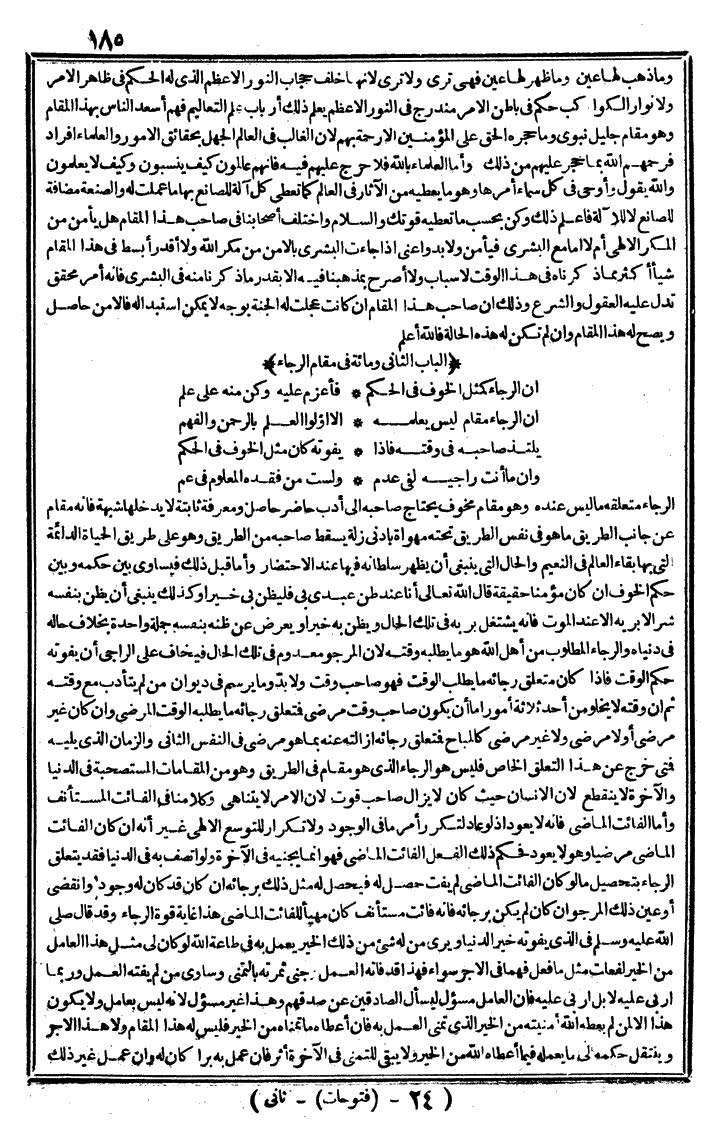 ١٨٥
وماذهب لها عين وماظهر لها عين فهى ترى ولا ترى لانها خلف حجاب النور الاعظم الذى له الحكم فى ظاهر الامر
ولانوار الكواكب حكم فى باطن الامر مندرج فى النور الاعظم يعلم ذلك أرباب علم التعاليم فهم أسعد الناس بهذا المقام
وهو مقام جليل نبوى وما حجره الحق على المؤمنين الارحمة بهم لان الغالب فى العالم الجهل بحقائق الامور والعلماء افراد
فرحمهم الله بما حجر عليهم من ذلك وأما العلماء بالله فلا حرج عليهم فيه فانهم عالمون كيف ينسبون وكيف لا يعلمون
والله يقول وأوحى فى كل سماء أمرها وهو ما يعطيه من الآثار فى العالم كما تعطى كل آلة للصانع بها ما عملت له والصنعة مضافة
للصانع لا للآلة فاعلم ذلك وكن بحسب ما تعطيه قوتك والسلام واختلف أصحابنا فى صاحب هذا المقام هل يأمن من
المكر الالهى أم لا امامع البشرى فيأمن ولا بد واعنى اذا جاءت البشرى بالامن من مكر الله ولا أقدر أبسط فى هذا المقام
شيأ أكثر مما ذكرناه فى هذا الوقت لاسباب ولا أصرح بمذهبنا فيه الا بقدر ما ذكرنا منه فى البشرى فانه أمر محقق
تدل عليه العقول والشرع وذلك ان صاحب هذا المقام ان كانت عجلت له الجنة بوجه لا يمكن استبداله فالامن حاصل
ويصح له هذا المقام وان لم تكن له هذه الحالة فالله أعلم
﴿الباب الثانى ومائة فى مقام الرجاء﴾
ان الرجاء كمثل الخوف فى الحكم * فأعزم عليه وكن منه على علم
ان الرجاء مقام ليس يعلمه * الا اولوا العلم بالرحمن والفهم
يلتذ صاحبه فى وقته فاذا * يفوته كان مثل الخوف فى الحكم
وان ما أنت راجيه لفى عدم * ولست من فقده المعلوم فى عم
الرجاء متعلقه ما ليس عنده وهو مقام مخوف يحتاج صاحبه الى أدب حاضر حاصل ومعرفة ثابتة لا يدخلها شبهة فانه مقام
عن جانب الطريق ما هو فى نفس الطريق تحته مهواة بادنى زلة يسقط صاحبه من الطريق وهو على طريق الحياة الدائمة
التى بها بقاء العالم فى النعيم والحال التى ينبغى أن يظهر سلطانه فيها عند الاحتضار وأما قبل ذلك فيساوى بين حكمه وبين
حكم الخوف ان كان مؤمنا حقيقة قال الله تعالى أنا عند ظن عبدى بى فليظن بى خيرا وكذلك ينبغى أن يظن بنفسه
شرا لا بربه الا عند الموت فانه يشتغل بربه فى تلك الحال ويظن به خيرا ويعرض عن ظنه بنفسه جملة واحدة بخلاف حاله
فى دنياه والرجاء المطلوب من أهل الله هو ما يطلبه وقته لان المرجو معدوم فى تلك الحال فيخاف على الراجى أن يفوته
حكم الوقت فاذا كان متعلق رجائه ما يطلب الوقت فهو صاحب وقت ولا بد وما يرسم فى ديوان من لم يتأدب مع وقته
ثم ان وقته لا يخلو من أحد ثلاثة أمور اما أن يكون صاحب وقت مرضى فتعلق رجائه ما يطلبه الوقت المرضى وان كان غير
مرضى أولا مرضى ولا غير مرضى كالمباح فتعلق رجائه ازالته عنه بما هو مرضى فى النفس الثانى والزمان الذى يليه
فتى خرج عن هذا التعلق الخاص فليس هو الرجاء الذى هو مقام فى الطريق وهو من المقامات المستصحبة فى الدنيا
والآخرة لا ينقطع لان الانسان حيث كان لا يزال صاحب فوت لان الامر لا يتناهى وكلامنا فى الفائت المستأنف
وأما الفائت الماضى فانه لا يعود اذ لو عاد لتكرر أمر ما فى الوجود ولا تكرار للتوسع الالهى غير أنه ان كان الفائت
الماضى مرضيا وهو لا يعود فحكم ذلك الفعل الفائت الماضى فهو انما يجنيه فى الآخرة ولو اتصف به فى الدنيا فقد يتعلق
الرجاء بتحصيل ما لو كان الفائت الماضى لم يفت حصل له فيحصل له مثل ذلك برجائه ان كان قد كان له وجود وانقضى
أو عين ذلك المرجو ان كان لم يكن برجائه فانه فائت مستأنف كان مهيأ للفائت الماضى هذا غاية قوة الرجاء وقد قال صلى
الله عليه وسلم فى الذى يفوته خير الدنيا ويرى من له شئ من ذلك الخير يعمل به فى طاعة الله لو كان لى مثل هذا العامل
من الخير لفعلت مثل ما فعل فهما فى الاجر سواء فهذا قد فاته العمل وجنى ثمرته بالتمنى وساوى من لم يفته العمل وربما
اربى عليه لا بل اربى عليه فان العامل مسؤل ليسأل الصادقين عن صدقهم وهذا غير مسؤل لانه ليس بعامل ولا يكون
هذا الا لمن لم يعطه الله أمنيته من الخير الذى تمنى العمل به فان أعطاه ما تمناه من الخير فليس له هذا المقام ولا هذا الاجر
وينتقل حكمه الى ما يعمله فيما أعطاه الله من الخير ولا يبقى للتمنى فى الآخرة أثر فان عمل به برا كان له وان عمل غير ذلك
( ٢٤ - (فتوحات) - ثانى )